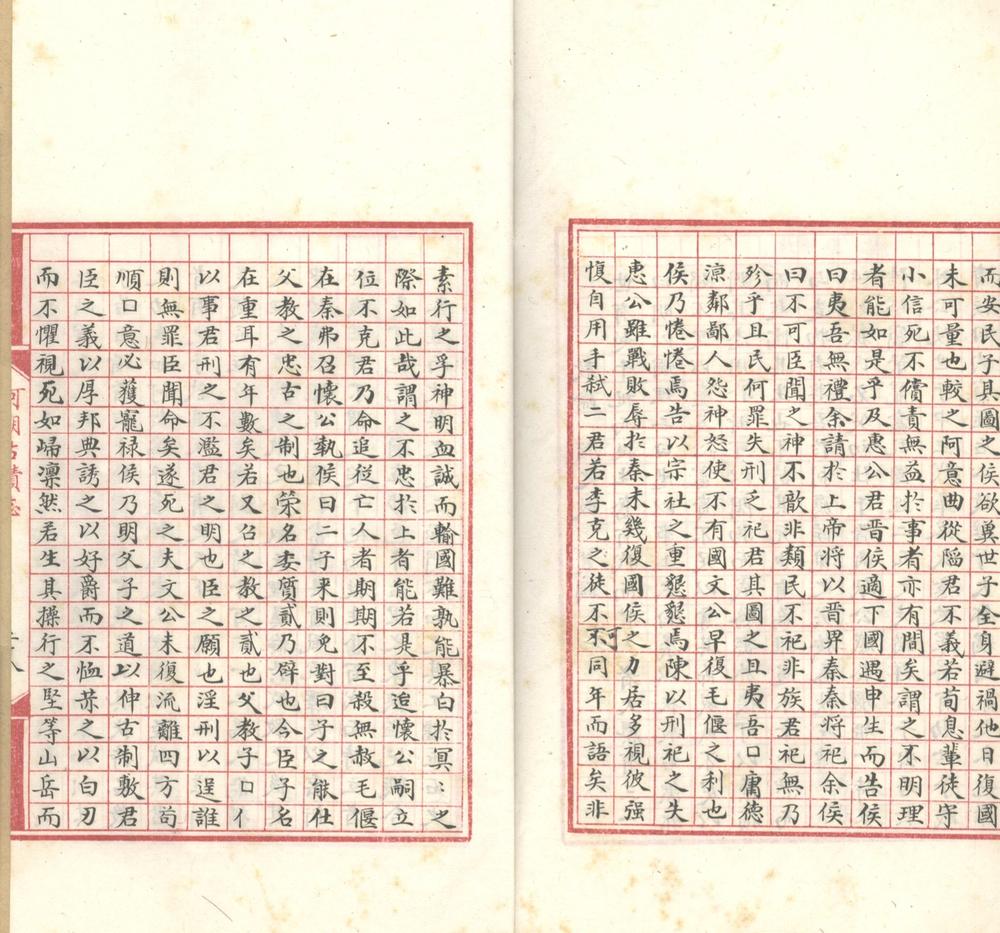 而安民子其圖之侯欲奠世子全身避禍他日復國
未可量也較之阿意曲從陷君不義若荀息輩徒守
小信死不償責無益於事者亦有間矣謂之不明理
者能如是乎及惠公君晋侯適下國遇申生而告侯
曰夷吾無禮余請於上帝將以晋畀秦秦將祀余侯
曰不可臣聞之神不歆非類民不祀非族君祀無乃
殄乎且民何罪失刑乏祀君其圖之且夷吾口庸德
凉鄰鄙人怨神怒使不有國文公早復毛偃之利也
侯乃惓惓焉告以宗社之重懇懇焉陳以刑祀之失
惠公雖戰敗辱於秦未幾復國侯之力居多視彼强
愎自用手弑二君若李克之徒不可不同年而語矣非
素行之孚神明血誠而輸國難孰能暴白於冥:之
際如此哉謂之不忠於上者能若是乎迨懷公嗣立
位不克君乃命追從亡人者期期不至殺無赦毛偃
在秦弗召懷公執侯曰二子来則免對曰子之能仕
父教之忠古之制也策名委質貳乃辟也今臣子名
在重耳有年數矣若又召之教之貳也父教子口亻
以事君刑之不濫君之明也臣之願也淫刑以逞誰
則無罪臣聞命矣遂死之夫文公未復流離四方苟
順口意必獲寵禄侯乃明父子之道以伸古制敷君
臣之義以厚邦典誘之以好爵而不恤恭之以白刃
而不懼視死如歸凛然若生其操行之堅等山岳而